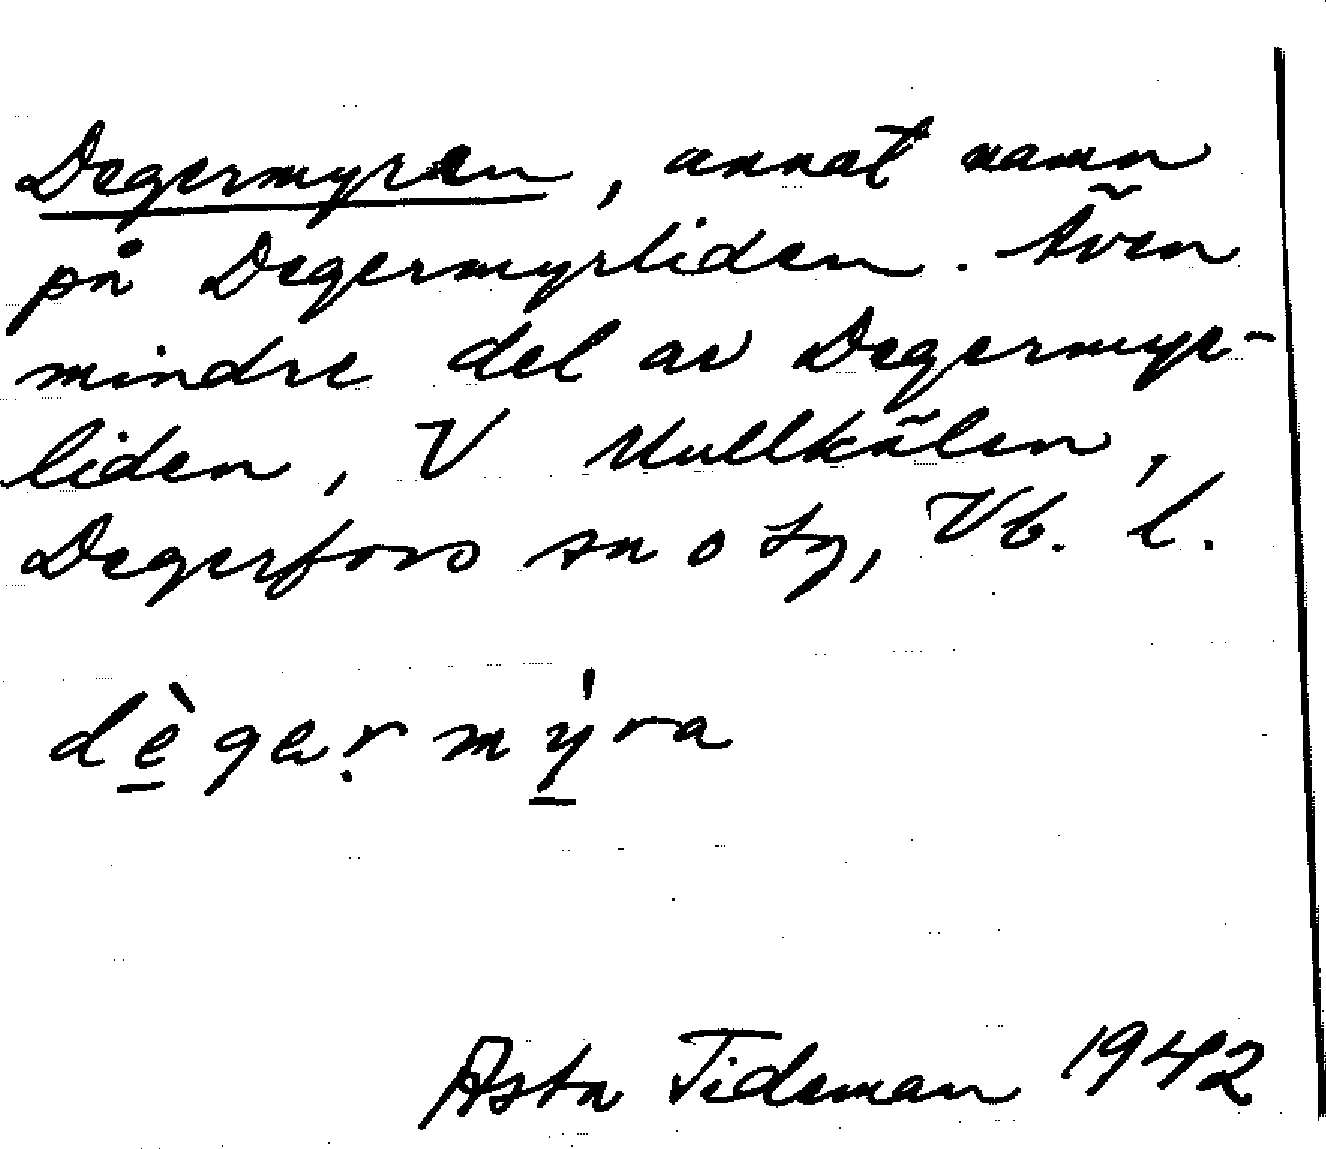 Degermyran, annat namn
på Degermyrliden. Även
mindre del av Degermyr-
liden, V Kullkälen,
Degerfors sn o tg, Vb. l.
dègarmýra
Asta Tideman 1942